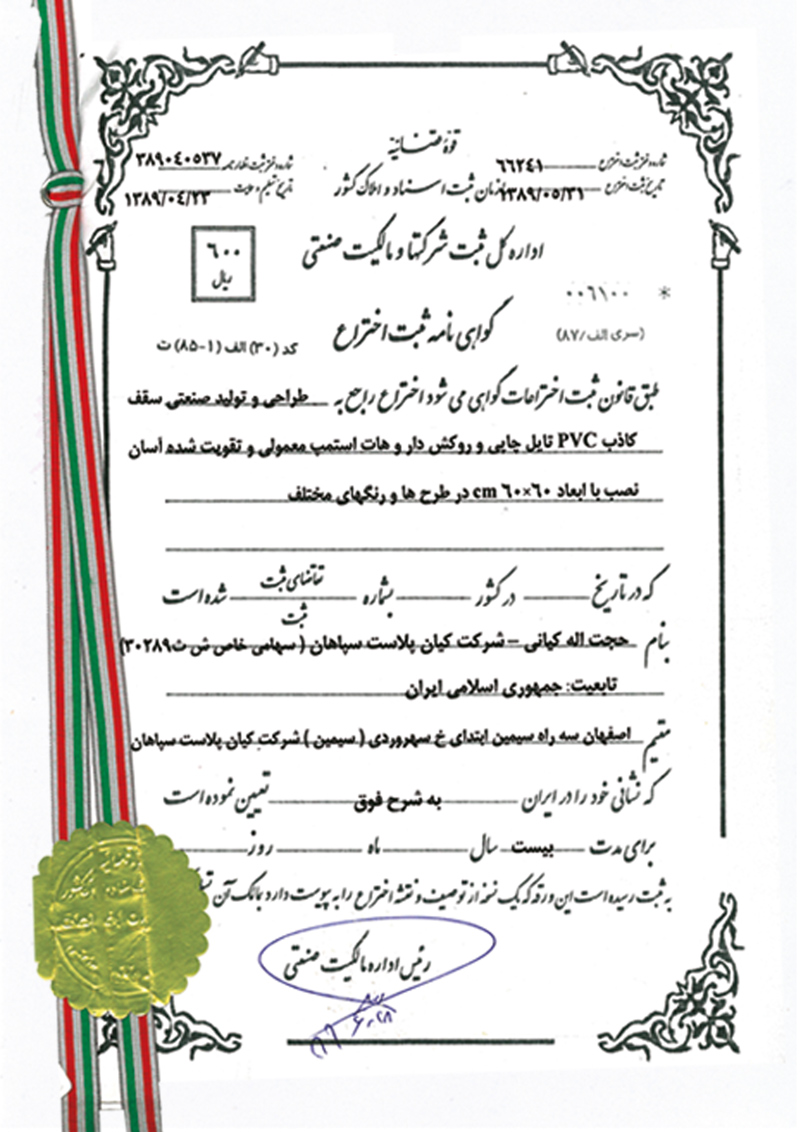 قوهٔ قضائیه
شماره دفتر ثبت اختراع ۶۶۲۴۱
شماره دفتر ثبت اظهارنامه ۳۸۹۰۴۰۵۳۷
سازمان ثبت اسناد و املاک کشور
تاریخ ثبت اختراع ۱۳۸۹/۰۵/۳۱
تاریخ تسلیم ۱۳۸۹/۰۴/۲۳
اداره کل ثبت شرکتها و مالکیت صنعتی
۶۰۰
ریال
* ۰۰۶۱۰۰
(سری الف/۸۷)
گواهی نامه ثبت اختراع
کد (۳۰) الف (۱-۸۵) ت
طبق قانون ثبت اختراعات گواهی می شود اختراع راجع به طراحی و تولید صنعتی سقف
کاذب PVC تایل چاپی و روکش دار و هات استمپ معمولی و تقویت شده آسان
نصب با ابعاد ۶۰×۶۰ cm در طرح ها و رنگهای مختلف
که در تاریخ در کشور بشماره تقاضای ثبت شده است
ثبت
بنام حجت اله کیانی – شرکت کیان پلاست سپاهان ( سهامی خاص ش ث۳۰۲۸۹)
تابعیت: جمهوری اسلامی ایران
مقیم اصفهان سه راه سیمین ابتدای خ سهروردی ( سیمین ) شرکت کیان پلاست سپاهان
که نشانی خود را در ایران به شرح فوق تعیین نموده است
برای مدت بیست سال ماه روز
به ثبت رسیده است این ورقه که یک نسخه از توصیف و نقشه اختراع را به پیوست دارد بمالک آن
رئیس اداره مالکیت صنعتی